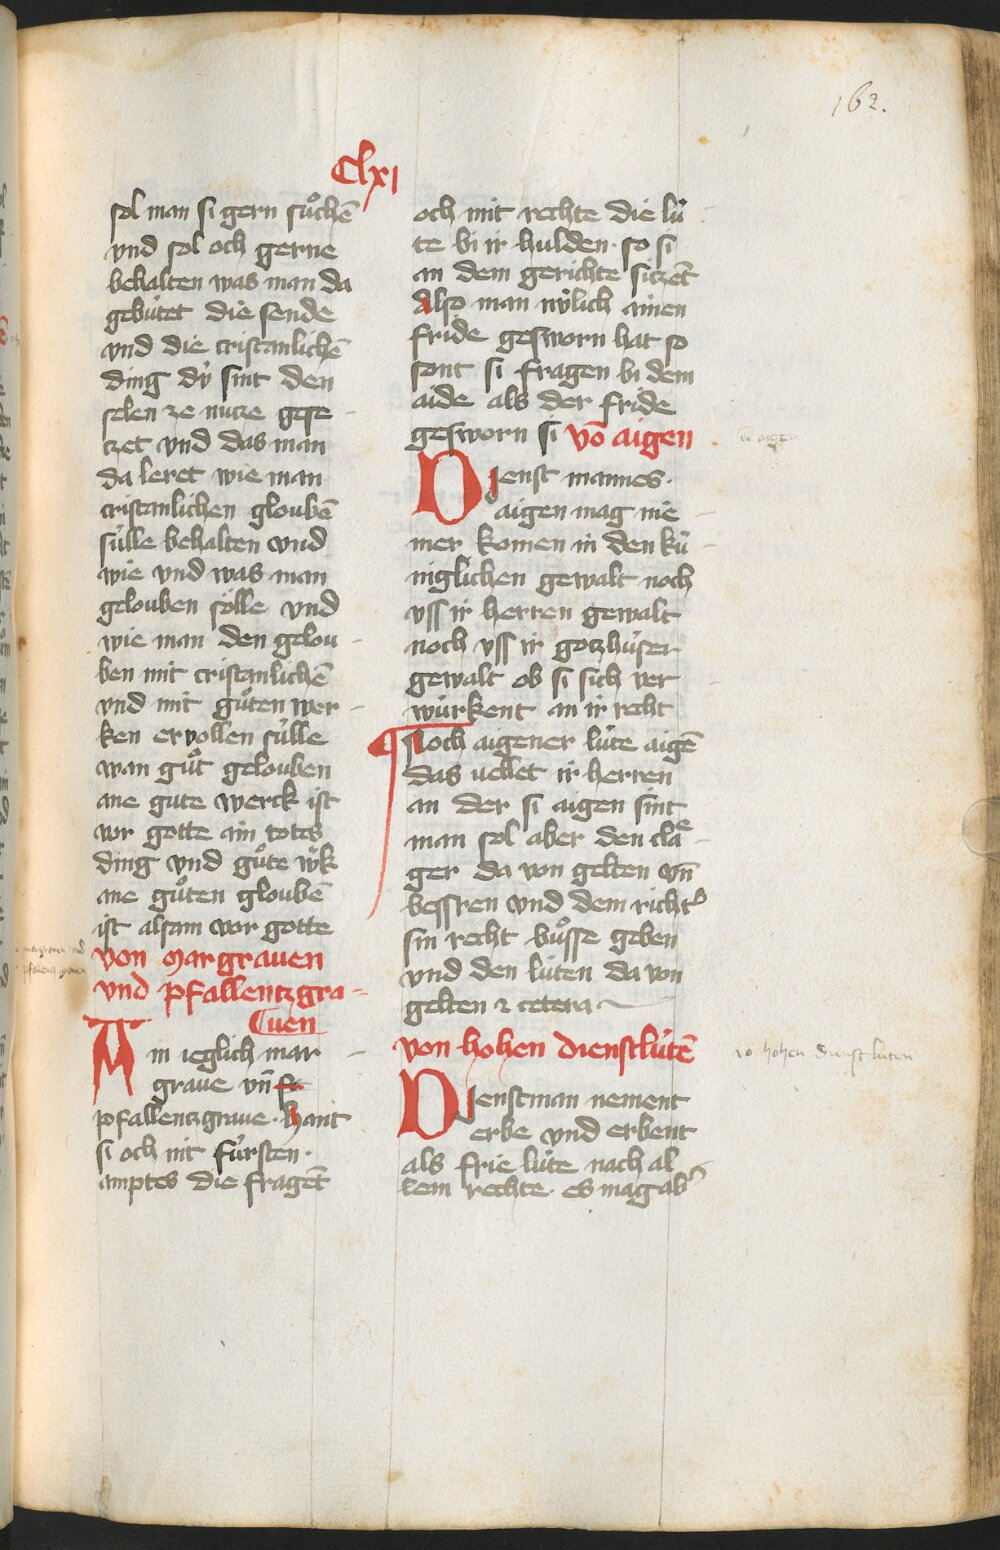 162.
Clxi
sol man si gern sůchē
vnd sol och gerne
behalten was man da
gebútet die sende
vnd die cristanlichē
ding dÿ sint den
selen ze nutze gese
tzet vnd das man
da leret wie man
cristanlichen gloubē
súlle behalten vnd
wie vnd was man
gelouben sölle vnd
wie man den gelou
ben mit cristanlichē
vnd mit gůten wer
ken ervollen súlle
wan gůt gelouben
ane gute werck ist
vor gotte ain totes
ding vnd gůte wk
ane gůten gloubē
ist alsam vor gotte
von margrauen
vnd pfallentzgra
uen
Ain ieglich mar
graue vn̄
pfallentzgraue. hant
si och nit fúrsten.
amptes die fragēt
och mit rechte die lú
te bi ir hulden. so si
an dem gerichte sitzēt
Also man nv́lich ainen
fride gesworn hat so
sont si fragen bi dem
aide als der fride
gesworn si vō aigen
Dienst mannes.
aigen mag nie
mer komen in den kú
niglichen gewalt noch
vss ir herren gewalt
noch vss ir gotzhúser
gewalt ob si sich ver
würkent an ir recht
Noch aigener lúte aigē
das vellet ir herren
an der si aigen sint
man sol aber den cla
ger da von gelten vn̄
bessren vnd dem richt͛
sin recht bůsse geben
vnd den lúten da von
gelten ⁊ cetera
von hohen dienstlútē
Dienstman nement
erbe vnd erbent
als frie lúte nach al
lem rechte. es mag ab͛
vō aigen
vō hohen dienstluten
margrauen vnd
pfallentz grauen